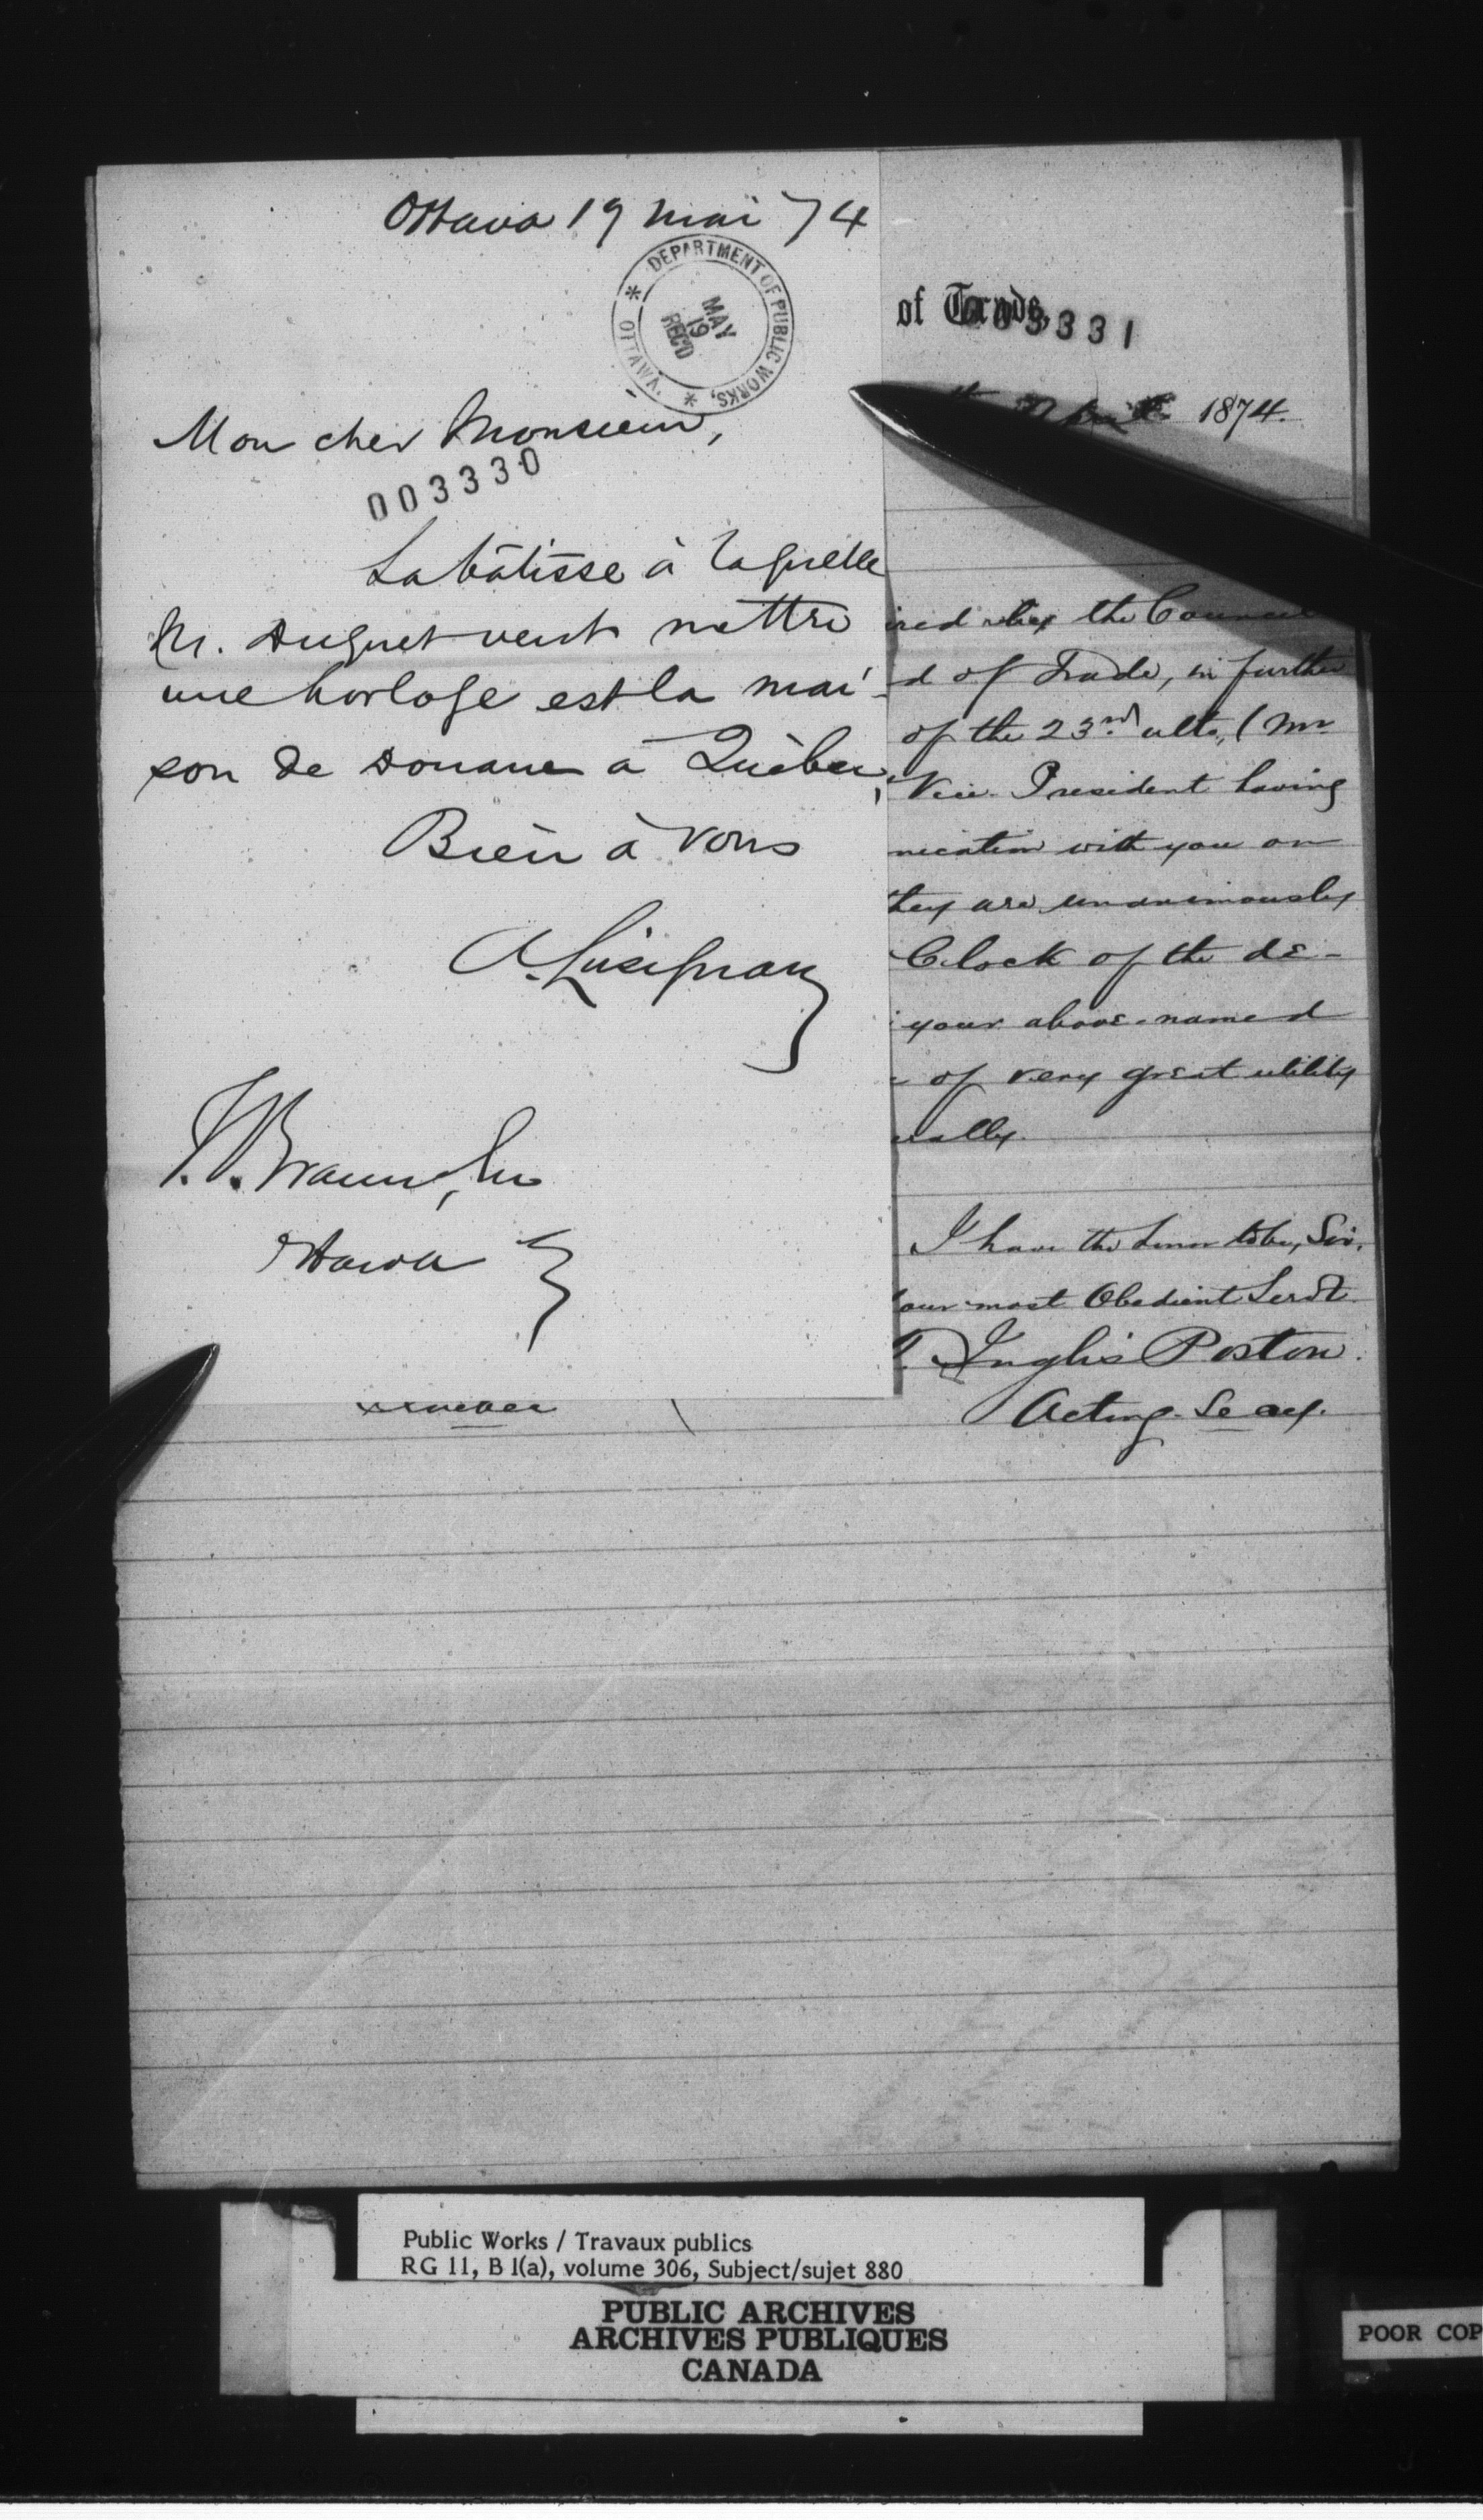 Ottawa 19 mai 74
DEPARTMENT OF PUBLIC WORKS, * OTTAWA *
MAY
19
REC'D
Mon cher Monsieur,
003330
La bâtisse à laquelle
M. Duquet veut mettre
une horloge est la mai-
son de Douane à Québec,
Bien à vous
A. Lusignan
F. Braun,
Ottawa
of Trade,
003331
1874.
the Council
d of Trade, in further
of the 23rd ulto, (Mr
Vice-President having
nication with you on
they are unanimously
Clock of the de-
your above-named
of very great utility
ually.
I have the honor to be, Sir,
our most Obedient Servt
T. Inglis Poston.
Acting-Secy.
Public Works / Travaux publics
RG 11, B 1(a), volume 306, Subject/sujet 880
PUBLIC ARCHIVES
ARCHIVES PUBLIQUES
CANADA
POOR COP